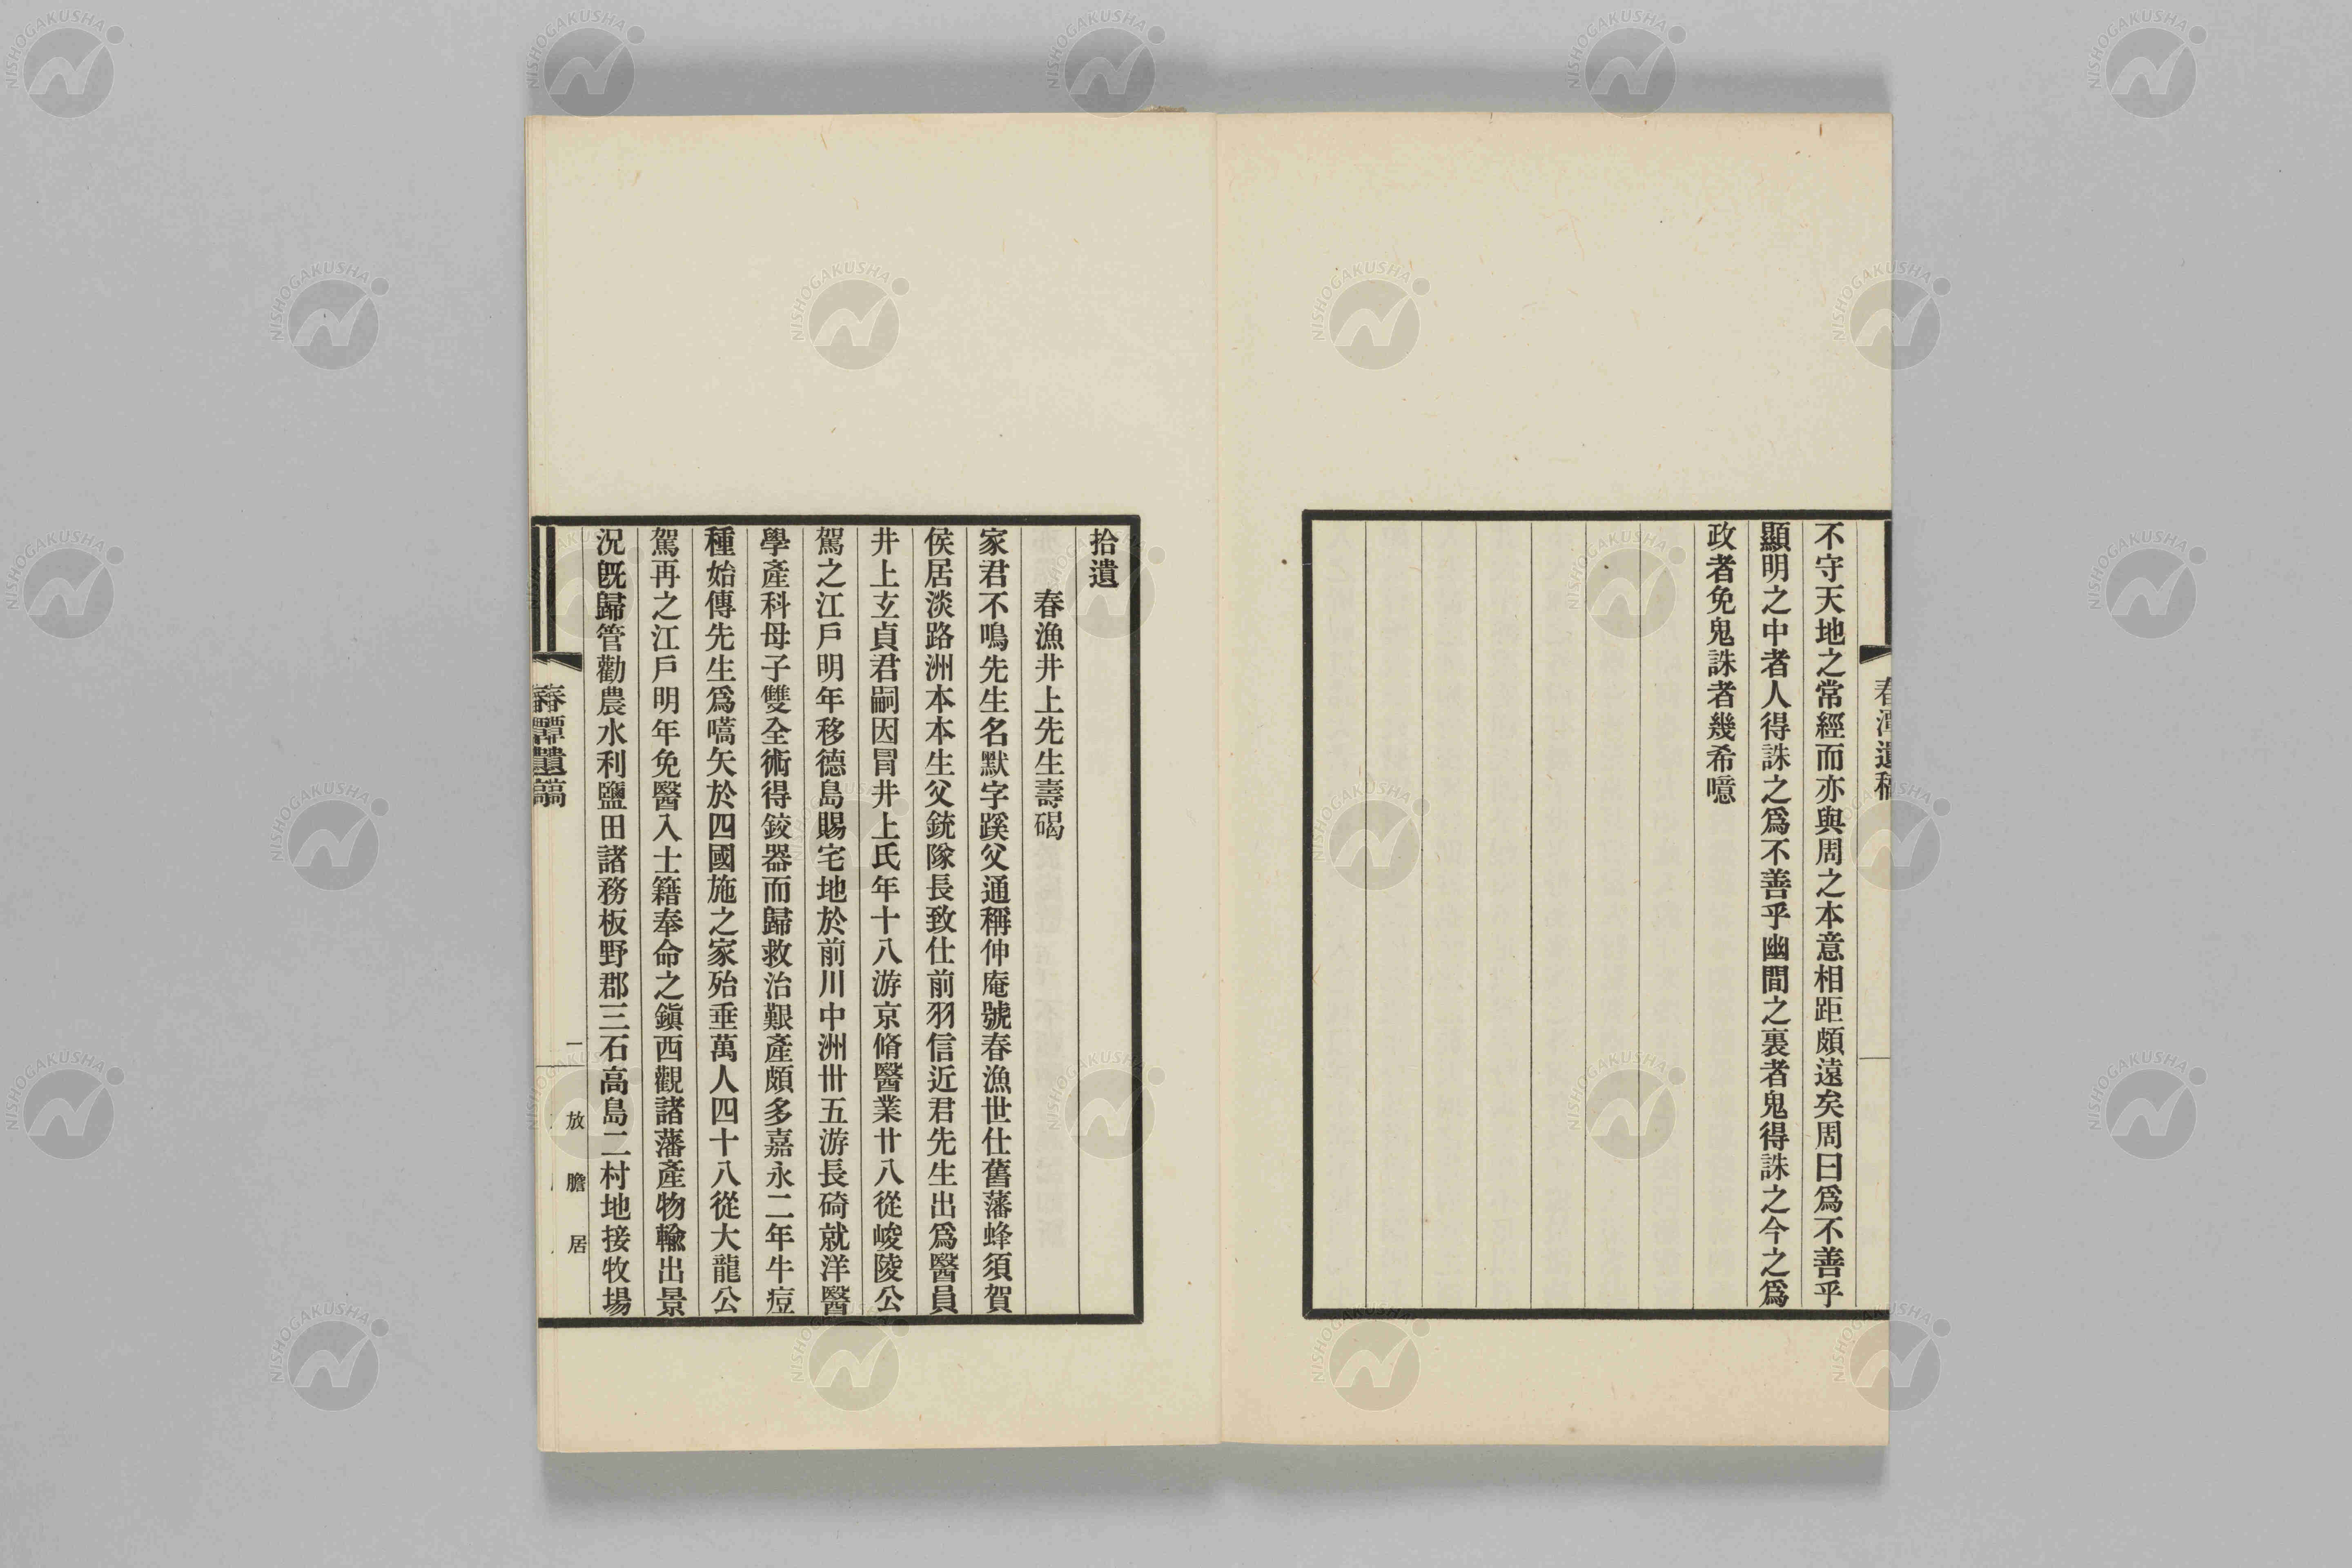 春潭遺稿
不守天地之常經而亦與周之本意相距頗遠矣周曰爲不善乎
顯明之中者人得誅之爲不善乎幽間之裏者鬼得誅之今之爲
政者免鬼誅者幾希噫
拾遺
春漁井上先生壽碣
家君不鳴先生名默字蹊父通稱伸庵號春漁世仕舊藩蜂須賀
侯居淡路洲本本生父銃隊長致仕前羽信近君先生出爲醫員
井上玄貞君嗣因冐井上氏年十八游京脩醫業廿八從峻陵公
駕之江戶明年移德島賜宅地於前川中洲卅五游長碕就洋醫
學產科母子雙全術得鉸器而歸救治艱產頗多嘉永二年牛痘
種始傳先生爲嚆矢於四國施之家殆垂萬人四十八從大龍公
駕再之江戶明年免醫入士籍奉命之鎭西觀諸藩產物輸出景
況旣歸管勸農水利鹽田諸務板野郡三石高島二村地接牧場
春潭遺稿
一
放膽居
NISHOGAKUSHA